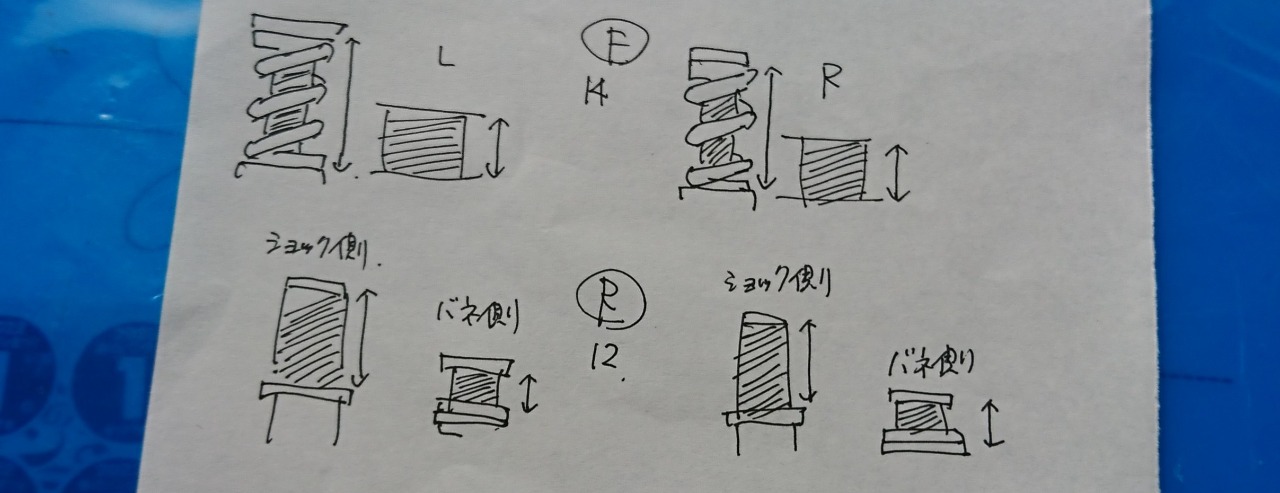 L
F
14
R
ショック側.
バネ側
R
12.
ショック側
バネ側